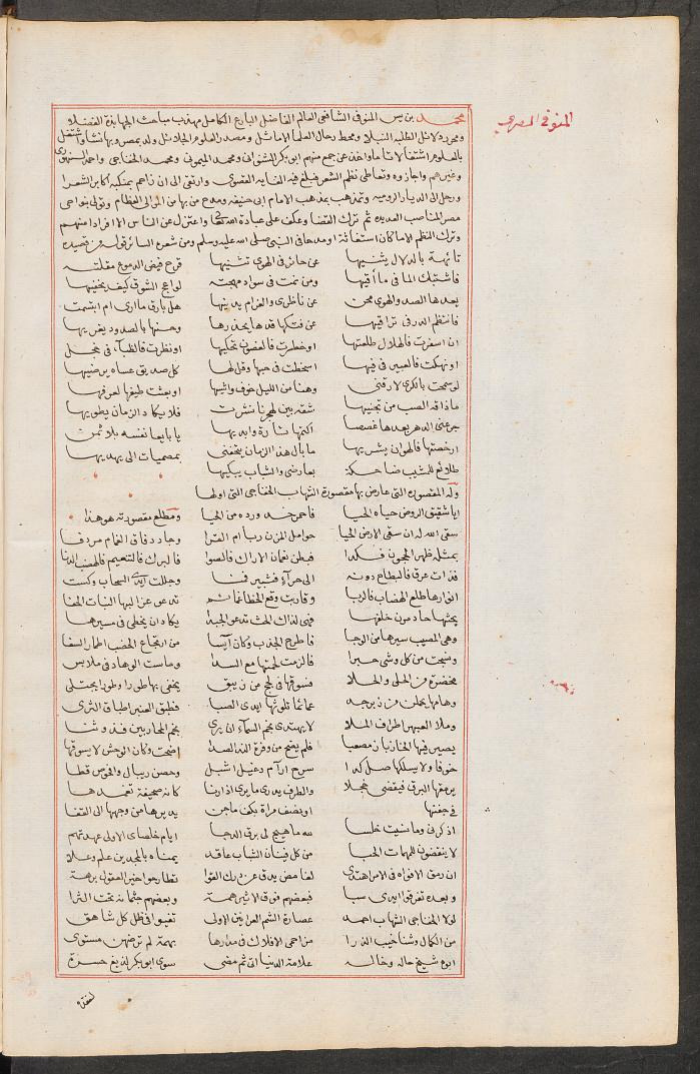 المنوفى المصرى
محمد بن يس المنوفى الشافعى العالم الفاضل البارع الكامل مهذب مباحث الجهابذة الفضلاء
ومحرر دلائل الطلبة النبلاء ومحط رحال العلما الاماثل ومصدر العلوم الجلائل ولد بمصر وبها نشا واشتغل
بالعلوم اشتغالا تاما واخذ عن جمع منهم ابو بكر الشنوانى ومحمد الميمونى ومحمد الخفاجى واحمد السنهورى
وغيرهم واجازوه وتعاطى نظم الشعر فبلغ فيه الغاية القصوى وارتقى الى ان زاحم بمنكبه اكابر الشعرا
ورحل الى الديار الرومية وتمذهب بمذهب الامام ابى حنيفه ومدح من بها من الموالى العظام وتولى بنواحى
مصر المناصب العديده ثم ترك القضا وعكف على عبادة الله تعالى واعتزل عن الناس الا افرادا منهم
وترك النظم الا ما كان استغاثة او مدحا فى النبى صلى الله عليه وسلم ومن شعره السائر قوله من قصيده
تائهة بالدلال يثنيها عن حائر فى الهوى تثنيها قرح فيض الدموع مقلته
فاشتبك الما فى مآقيها ومن نمت فى سواد مهجته لواعج الشوق كيف يخفيها
بعدها الصد والهوى محن عن ناظرى والغرام يدنيها هل بارق ما ارى ام ابتسمت
فانتظم الدر فى تراقيها عن فتكها قدها يحذرها وحسنها بالصدود يغريها
ان اسفرت فالهلال طلعتها او خطرت فالغصون تحكيها او نظرت فالظباء فى خجل
او نهكت فالعبير فى فيها اسخطت فى حبها وقل لها كل صديق عساه يرضيها
لو سمحت بالكرى لارقنى وهنا من الليل خوف واشيها او بعثت طيفها لعرفها
ماذا قه الصب من تجنيها شقة بين لهجرنا نشرت فلا يكاد الزمان يطويها
جرعنى الدهر بعدها غصصا اكتمها تارة وابديها يا بايعا نفسه بلا ثمن
ارخصتها فالهوان يشريها ما بال هذا الزمان يتحفنى بمصميات الى يهديها
طلائع للشيب ضاحكة بعارضى والشباب يبكيها
وله المقصوره التى عارض بها مقصورة الشهاب الخفاجى التى اولها
ايا شقيق الروض حياه الحيا فاحمر خد ورده من الحيا ومطلع مقصورته هو هذا
سقى الله ان سقى الارض الحيا حوامل المزن ربا ام القرا وجاد دفاق الغمام مردفا
بمثله ظهر الحجون فكدا فبطن نعمان الاراك فالصوا فالبرك فالتنعيم فالهضب الدنا
فذات عرق فالبطاح دونه الى حراء فثبير فنا وجللت ايدى السحاب وكست
انوارها طلع الهضاب فالربا وقاربت وقع الخطا غمائم تدعو عزاليها النبات للفنا
يحثها حاد مرن خلفها فهى لذاك الحث تدعو الجبا يكاد ان يخطى فى مسيرها
وهى المصيب سيرها من الوجبا فاطرح الجذب وكان آيسا من ارتجاع الخصب اطمار السفا
ونبحت من كل وشى حبرا فالزمت لحمتها مع السدا وماست الوهاد فى ملابس
مخضرة من الحلى والحلا فسوقها فى لج من زيبق يخفى بها طورا وطورا يجتلى
وهامها يجلى من زبرجد عمائما تلوثها ايدى الصبا فطبق العنبر اطباق الثرى
وملا العبير اطراف الملا لا يهتدى نجم السماء ان يرى
يصير فيها الخازباز مصعبا فلم يضح من وفرة الند الصدا اضحت وكان الوحش لا يسوقها
خوفا ولا يسلكها صل كدا سرح آرام وغيل اشبل وحصن ريبال والحوص قطا
يرمقها البرق فيغضى خجلا والطرف يدرى ما يرى اذا رنا كانه صحيفة تغمدها
فى جفنها او نصف مرآة بكف ماجن يديرها من وجهها الى القفا
اذكرنى وما نسيت خلسا مه ما هيج لى برق الدجا ايام خلصاى الاولى عهدتهم
لا ينقضون للمهات الحبا من كل فينان الشباب عاقد يمناه بالمجد بن علم وعلا
لفا مض يدق عن درك القوا تطارحوا خير العقول برهة
وبعده تفرقوا ايدى سبا فبعضهم فوق الاثير همة وبعضهم جثمانه تحت الثرا
لولا الخفاجى الشهاب احمد عصارة الشم العرانين الاولى تفيوا فى ظل كل شاهق
من الكمال وشناخيب الذرا من احمى الافلاك فى مدارها بهمة لم ترضهن مستوى
ابوه شيخ حاله وخاله علامة الدنيا التى ثم مضى سوى ابو بكر لذيغ حسرة